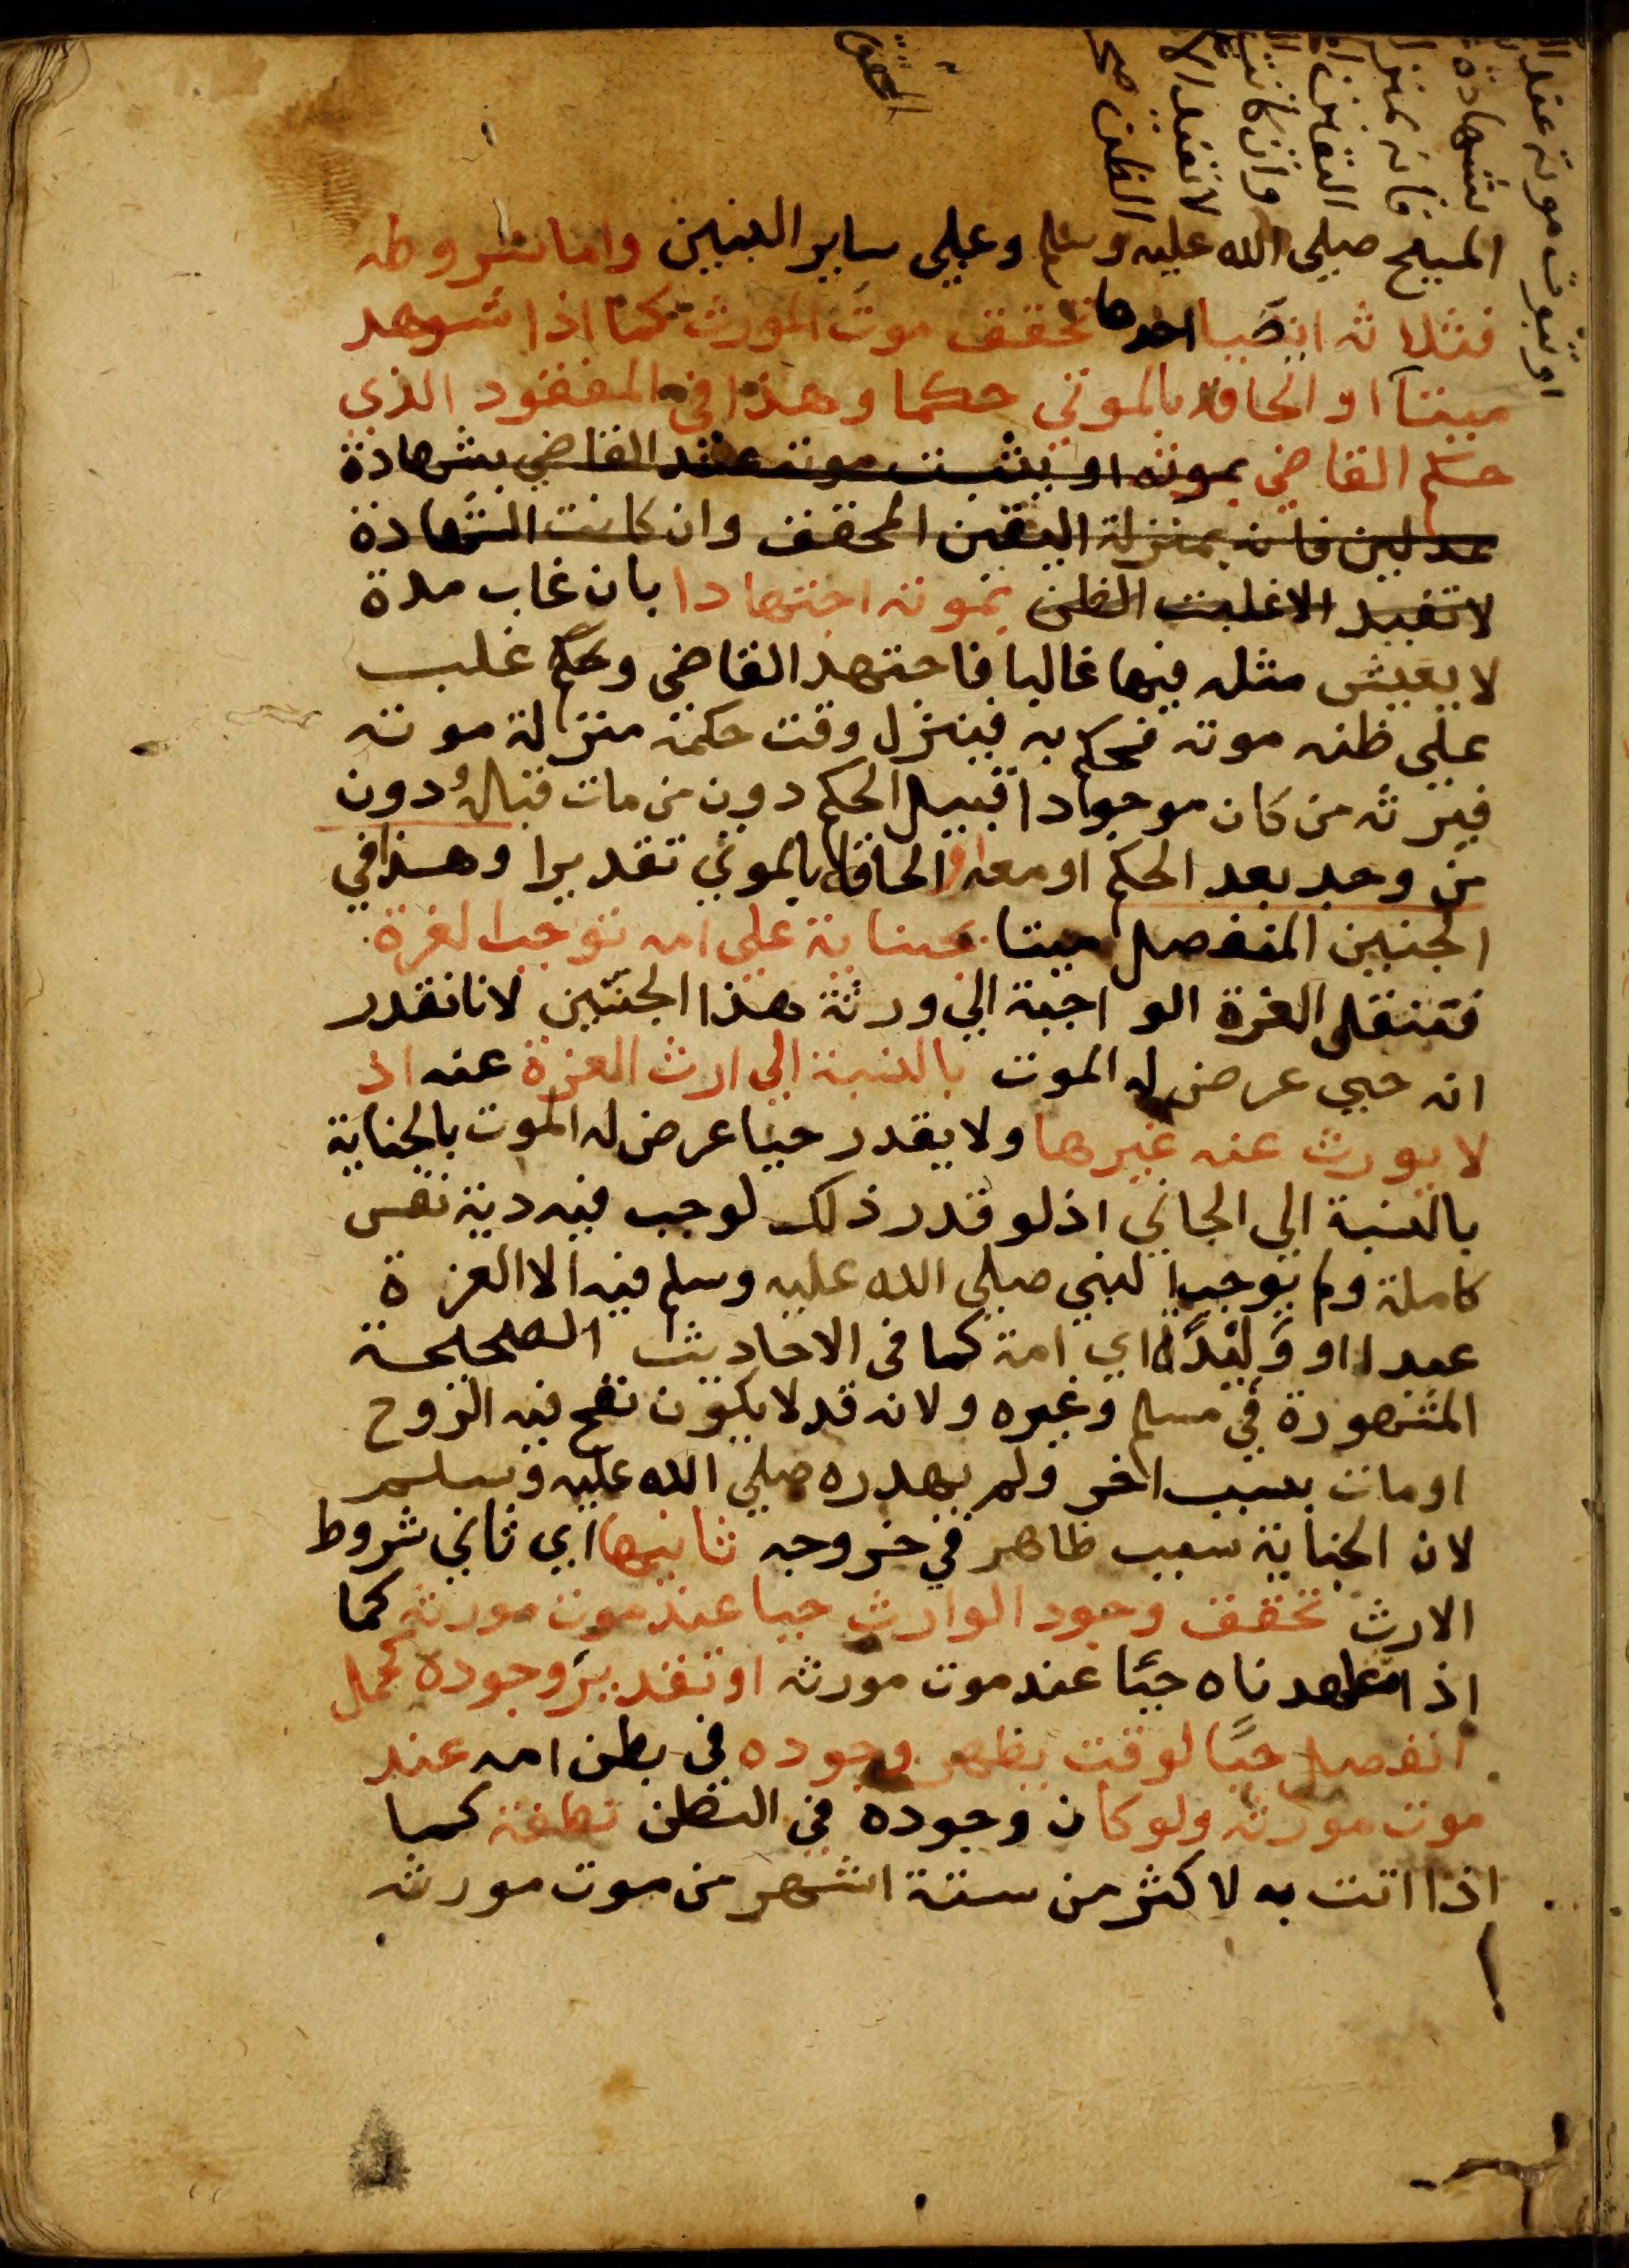 او ثبوت موته عند ا
بشهادة
فانه بمنز
اليقين ا
وان كانت
لا تفيد الا
الظن صح
المسيح صلى الله عليه وسلم وعلى ساير النبيين واما شروطه
فثلاثه ايضا احدها تحقق موت المورث كما اذا شوهد
ميتا او الحاقه بالموتى حكما وهذا في المفقود الذي
حكم القاضي بموته او يثبت موته عند القاضي بشهادة
عدلين فانه بمنزلة اليقين المحقق وان كانت الشهادة
لا تفيد الا غلبت الظن بموته اجتهادا بان غاب مدة
لا يعيش مثله فيها غالبا فاجتهد القاضي وحكم غلب
على ظنه موته فحكم به فينزل وقت حكمه منزلة موته
فيرثه من كان موجودا قبيل الحكم دون من مات قباله دون
من وجد بعد الحكم او معه او الحاقه بالموتى تقديرا وهذا في
الجنين المنفصل ميتا بجناية على امه توجب الغرة
فتنتقل الغرة الواجبة الى ورثة هذا الجنين لانا نقدر
انه حي عرض له الموت بالنسبة الى ارث الغرة عنه اذ
لا يورث عنه غيرها ولا يقدر حيا عرض له الموت بالجناية
بالنسبة الى الجاني اذ لو قدر ذلك لوجب فيه دية نفس
كاملة ولم يوجب النبي صلى الله عليه وسلم فيه الا الغرة
عبدا او وليدة اي امة كما في الاحاديث الصحيحة
المشهورة في مسلم وغيره ولانه قد لا يكون نفخ فيه الروح
او مات بسبب اخر ولم يهدره صلى الله عليه وسلم
لان الجناية سبب ظاهر في خروجه ثانيها اي ثاني شروط
الارث تحقق وجود الوارث حيا عند موت مورثه كما
اذا شاهدناه حيا عند موت مورثه او تقدير وجوده كحمل
انفصل حيا لوقت يظهر وجوده في بطن امه عند
موت مورثه ولو كان وجوده في البطن نطفة كما
اذا اتت به لاكثر من ستة اشهر من موت مورثه